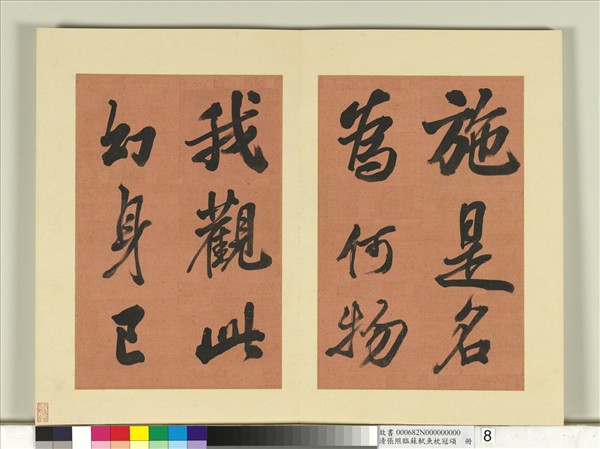 施是名
為何物
我觀此
幻身已
故書 000682N000000000
清張照臨蘇軾魚枕冠頌 冊
8